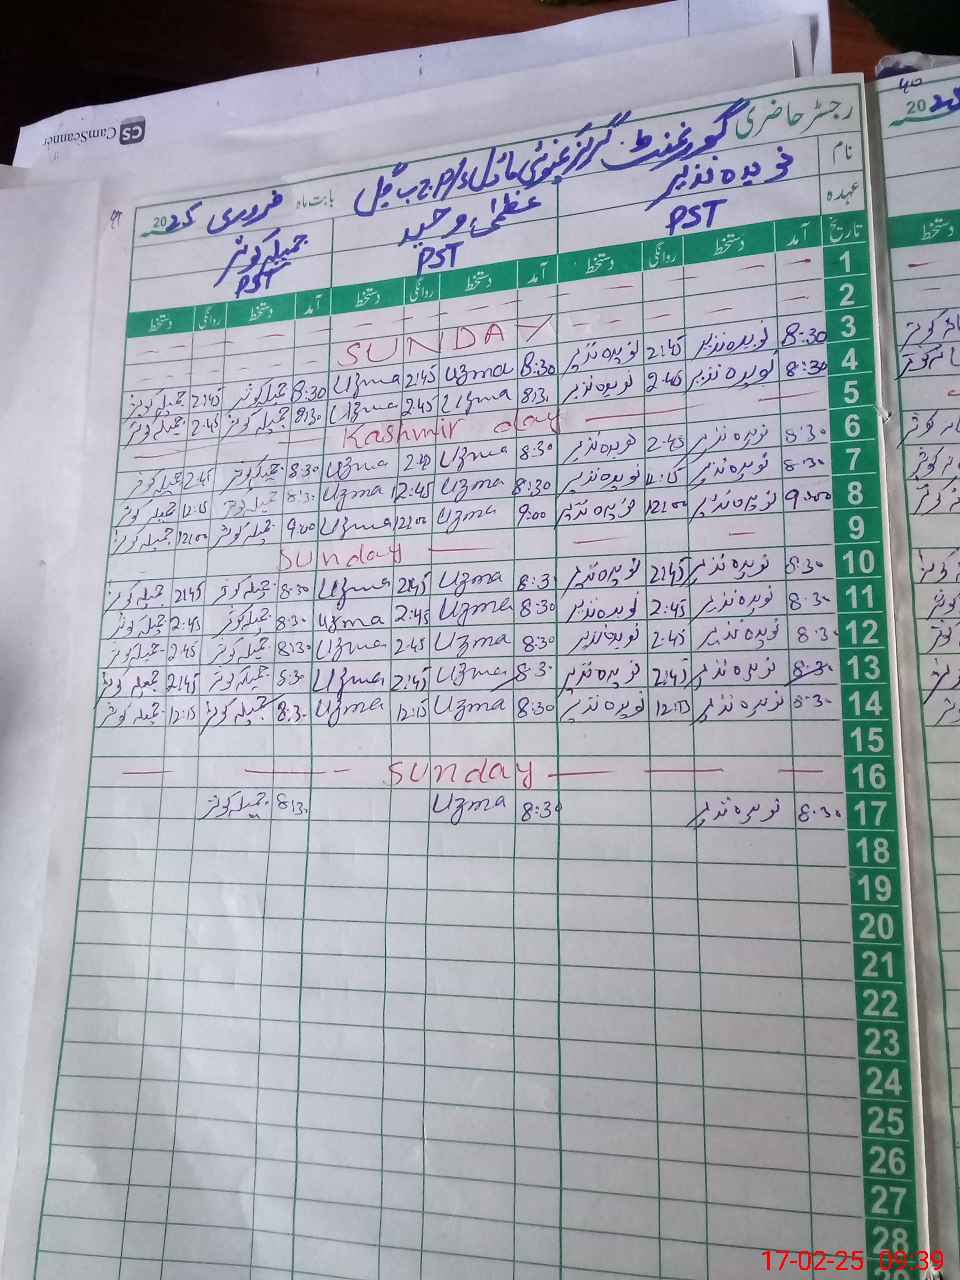 CS CamScanner
رجسٹر حاضری گورنمنٹ گرلز غوثیہ ماڈل P/S
بابت ماہ فروری 2025
نام نویدہ نذیر عظمیٰ وحید جمیلہ کوثر
عہدہ PST PST PST
تاریخ آمد دستخط روانگی دستخط آمد دستخط روانگی دستخط آمد دستخط روانگی دستخط
1
2 SUNDAY
3 8:30 نویدہ نذیر 2:45 نویدہ نذیر 8:30 Uzma 2:45 Uzma 8:30 جمیلہ کوثر 2:45 جمیلہ کوثر
4 8:30 نویدہ نذیر 2:45 نویدہ نذیر 8:30 Uzma 2:45 Uzma 8:30 جمیلہ کوثر 2:45 جمیلہ کوثر
5 Kashmir day
6 8:30 نویدہ نذیر 2:45 نویدہ نذیر 8:30 Uzma 2:45 Uzma 8:30 جمیلہ کوثر 2:45 جمیلہ کوثر
7 8:30 نویدہ نذیر نویدہ نذیر 8:30 Uzma 12:45 Uzma 8:30 جمیلہ کوثر 12:15 جمیلہ کوثر
8 9:00 نویدہ نذیر 12:00 نویدہ نذیر 9:00 Uzma 12:00 Uzma 9:00 جمیلہ کوثر 12:00 جمیلہ کوثر
9 Sunday
10 8:30 نویدہ نذیر 2:45 نویدہ نذیر 8:30 Uzma 2:45 Uzma 8:30 جمیلہ کوثر 2:45 جمیلہ کوثر
11 8:30 نویدہ نذیر 2:45 نویدہ نذیر 8:30 Uzma 2:45 Uzma 8:30 جمیلہ کوثر 2:45 جمیلہ کوثر
12 8:30 نویدہ نذیر 2:45 نویدہ نذیر 8:30 Uzma 2:45 Uzma 8:30 جمیلہ کوثر 2:45 جمیلہ کوثر
13 8:30 نویدہ نذیر 2:45 نویدہ نذیر 8:30 Uzma 2:45 Uzma 8:30 جمیلہ کوثر 2:45 جمیلہ کوثر
14 8:30 نویدہ نذیر 12:15 نویدہ نذیر 8:30 Uzma 12:15 Uzma 8:30 جمیلہ کوثر 12:15 جمیلہ کوثر
15
16 Sunday
17 8:30 نویدہ نذیر 8:30 Uzma 8:30 جمیلہ کوثر
18
19
20
21
22
23
24
25
26
27
28
17-02-25 09:39